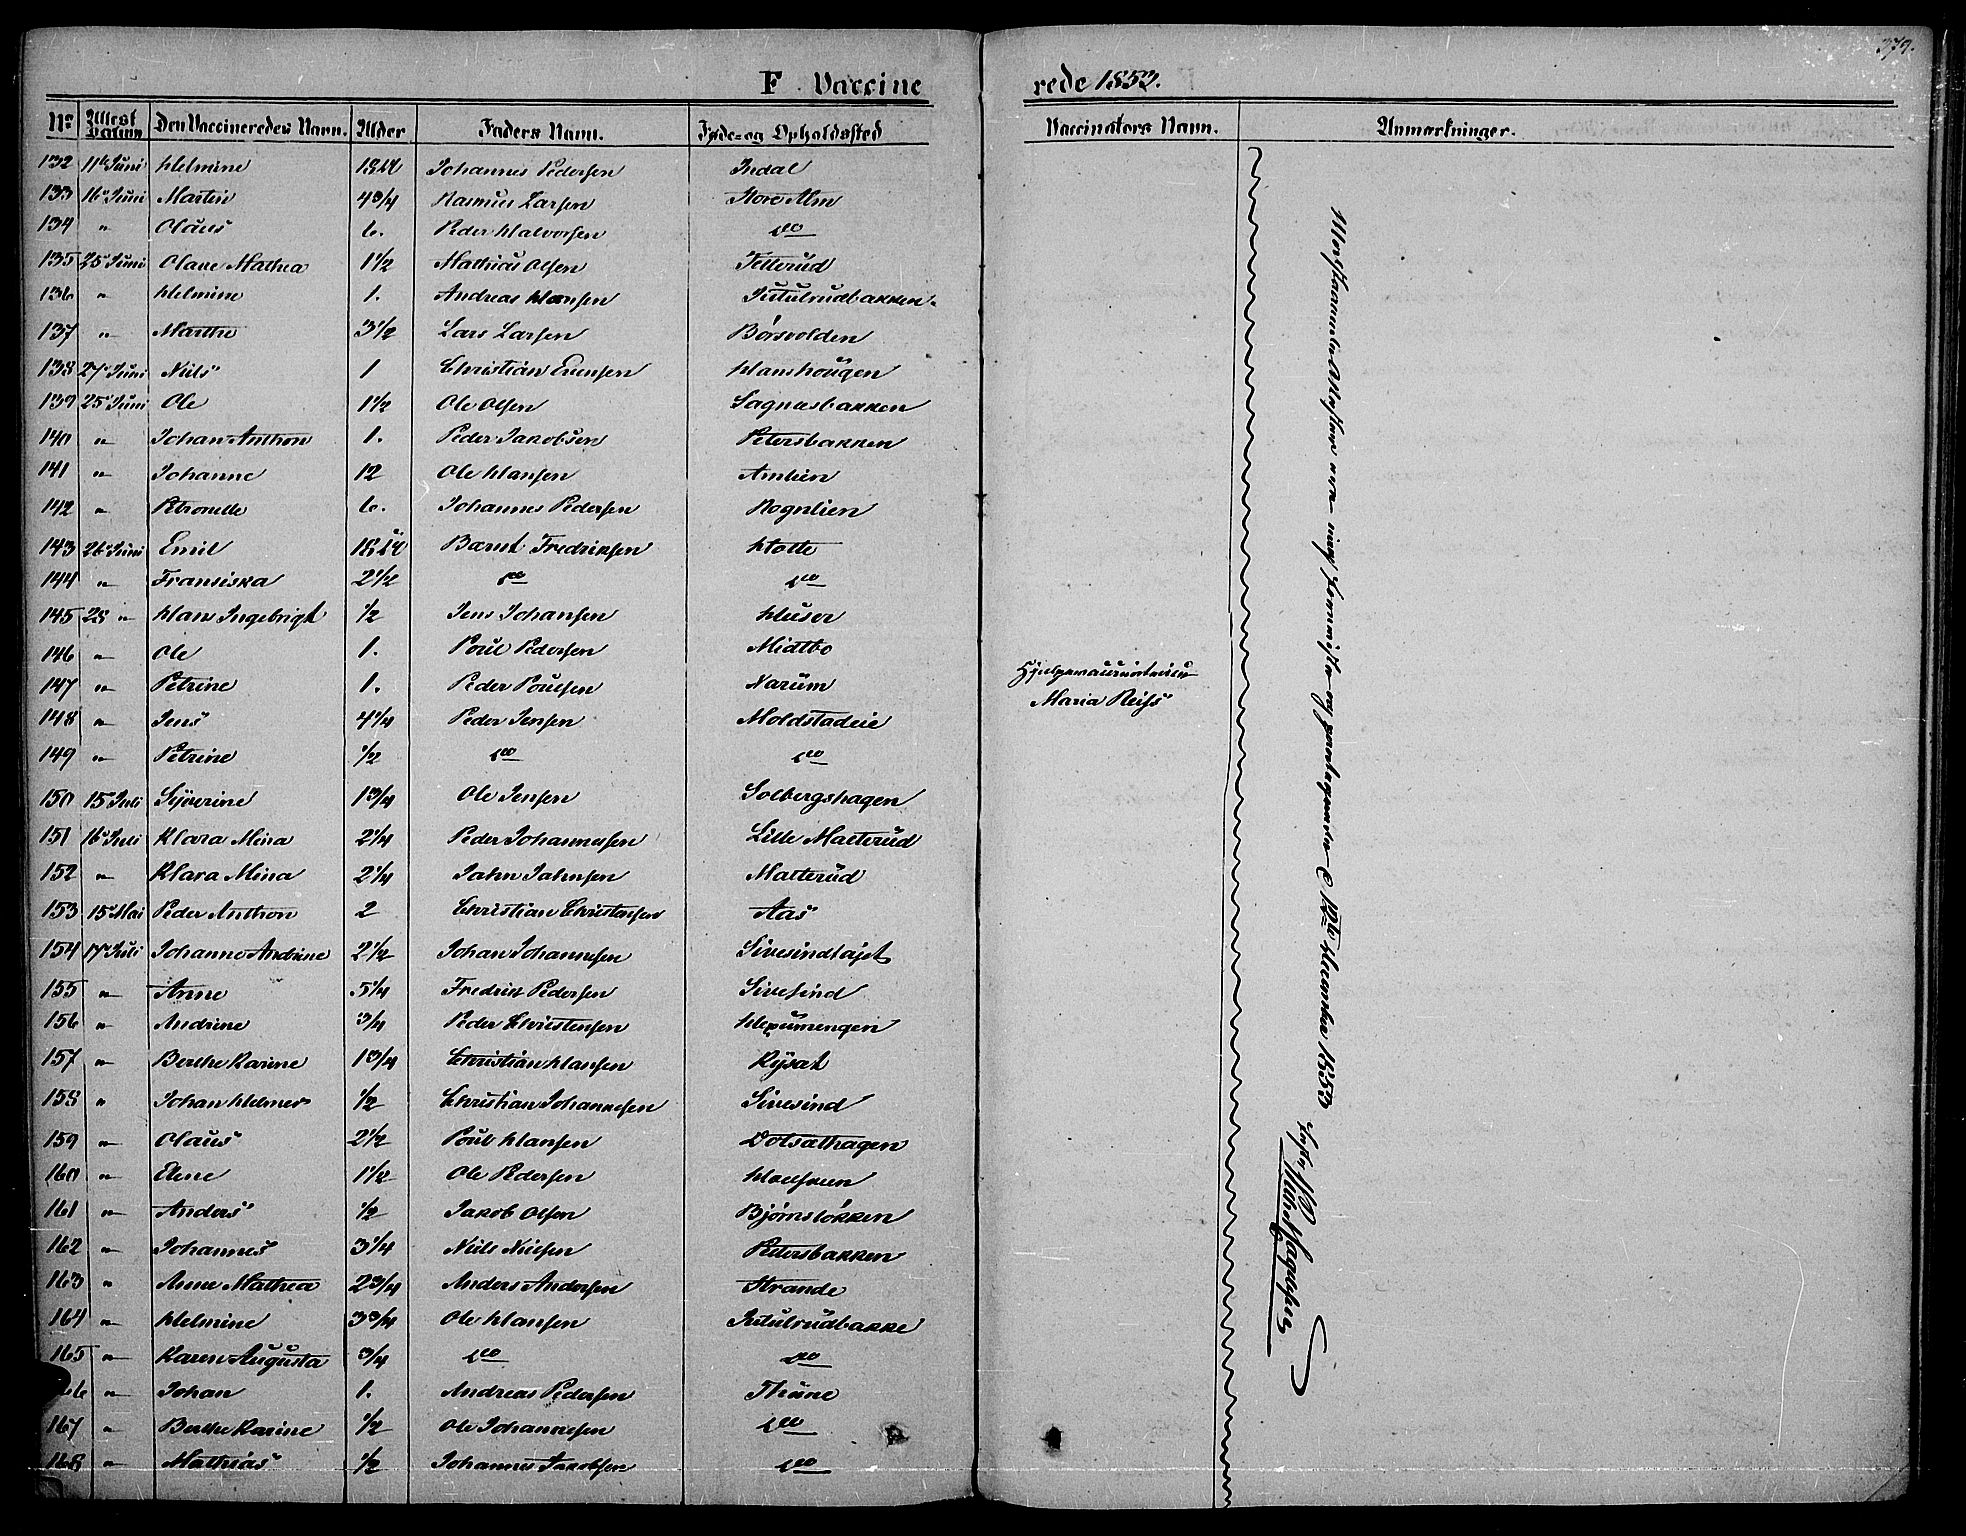 379.
F Vaccine rede 1853.
No Attest Datum Den Vaccineredes Navn. Alder Faders Navn. Føde- og Opholdssted Vaccinators Navn. Anmærkninger.
132 11te Juni Helmine Johannes Pedersen Indal
133 16de Juni Martin 4 3/4 Rasmus Larsen Store Alm
134 " Olaus 6. Peder Halvorsen do
135 25 Juni Olave Mathea 1 1/2 Mathias Olsen Tetterud
136 " Helmine 1. Andreas Hansen Jutulrudbakken.
137 " Marthe 3 1/2 Lars Larsen Børsvolden
138 27 Juni Nils 1 Christian Evensen Hanshougen
139 25 Juni Ole 1 1/2 Ole Olsen Sagnæsbakken
140 " Johan Anthon 1. Peder Jakobsen Petersbakken
141 " Johanne 12 Ole Hansen Amlien
142 " Petronelle 6. Johannes Pedersen Rognlien
143 26 Juni Emil Bærnt Fredriksen Hotte
144 " Fransiska 2 1/2 do do
145 28 " Hans Ingebrigt 1/2 Jens Johansen Huser
146 " Ole 1. Poul Pedersen Midtbo
147 " Petrine 1. Peder Poulsen Narum
148 " Jens 4 1/4 Peder Jensen Moldstadeie
149 " Petrine 1/2 do do
150 15 Juli Syverine 1 3/4 Ole Jensen Solbergshagen
151 16 Juli Klara Mina 2 1/4 Peder Johannesen Lille Mæterud
152 " Klara Mina 2 1/4 Jahn Jahnsen Mæterud
153 15 Mai Peder Anthon 2 Christian Christensen Aas
154 17 Juli Johanne Andrine 2 1/2 Johan Johannesen Sivesindtajet
155 " Anne 5 1/4 Fredrik Pedersen Sivesind
156 " Andrine 3/4 Peder Christensen Hexumengen
157 " Berthe Karine 1 3/4 Christian Hansen Rysat
158 " Johan Helmer 1/2 Christian Johannesen Sivesind
159 " Olaus 2 1/2 Poul Hansen Dolsæthagen
160 " Elene 1 1/2 Ole Pedersen
161 " Anders 1/2 Jakob Olsen Bjørnsløkken
162 " Johannes 3 1/4 Nils Nilsen Petersbakken
163 " Anne Mathea 2 3/4 Anders Andersen Strande
164 " Helmine 3 3/4 Ole Hansen Jutulrudbakke
165 " Karen Augusta 3/4 do do
66 " Johan 1. Andreas Pedersen Thune
167 " Berthe Karine 1/2 Ole Johannesen do
168 " Mathias 1/2 Johannes Jakobsen do
Maria Reiss
1853